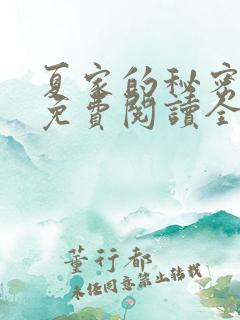 夏家的秘密
免費閱讀全
董行都
未经同意禁止转载